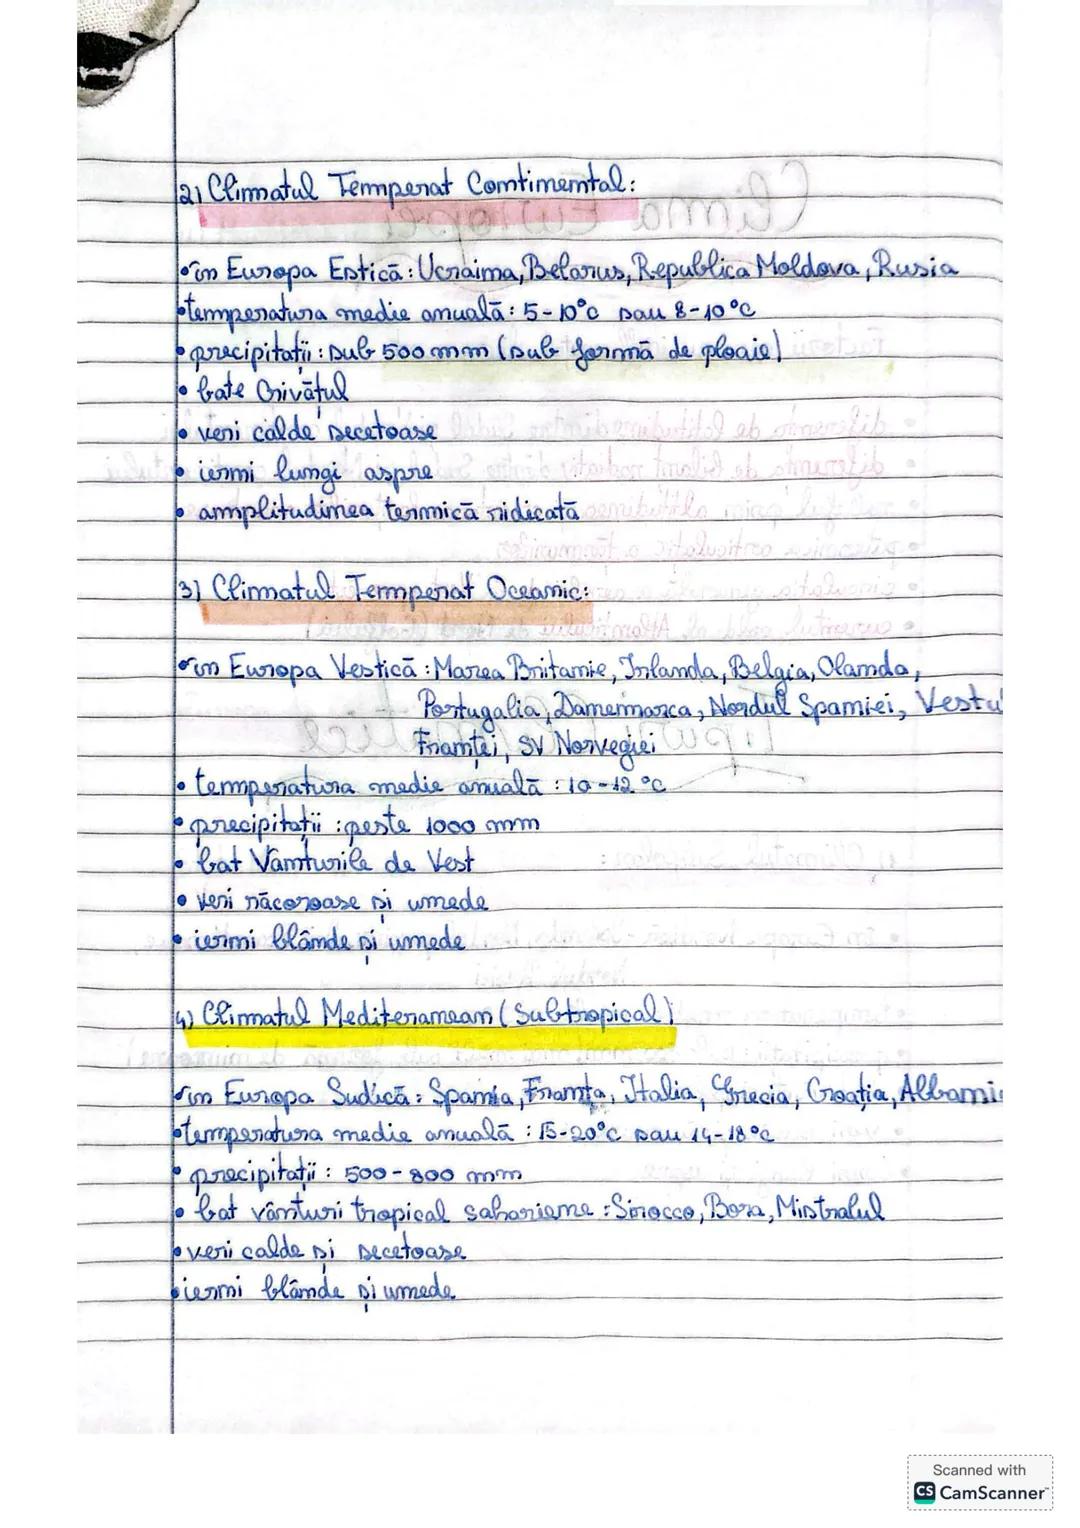 2) Climatul Temperat Continental:
• în Europa Estică: Ucraina, Belarus, Republica Moldova, Rusia
• temperatura medie anuală: 5-10°C sau 8-10°C
• precipitații: sub 500 mm (sub formă de ploaie)
• bate Crivățul
• veri calde secetoase
• ierni lungi aspre
• amplitudinea termică ridicată
3) Climatul Temperat Oceanic:
• în Europa Vestică: Marea Britanie, Irlanda, Belgia, Olanda,
Portugalia, Danemarca, Nordul Spaniei, Vestul
Franței, SV Norvegiei
• temperatura medie anuală: 10-12°C
• precipitații: peste 1000 mm
• bat Vânturile de Vest
• veri răcoroase și umede
• ierni blânde și umede
4) Climatul Mediteranean (Subtropical):
• în Europa Sudică: Spania, Franța, Italia, Grecia, Croația, Albania
• temperatura medie anuală: 15-20°C sau 14-18°C
• precipitații: 500-800 mm
• bat vânturi tropical sahariene: Sirocco, Bora, Mistralul
• veri calde și secetoase
• ierni blânde și umede
Scanned with
CS CamScanner